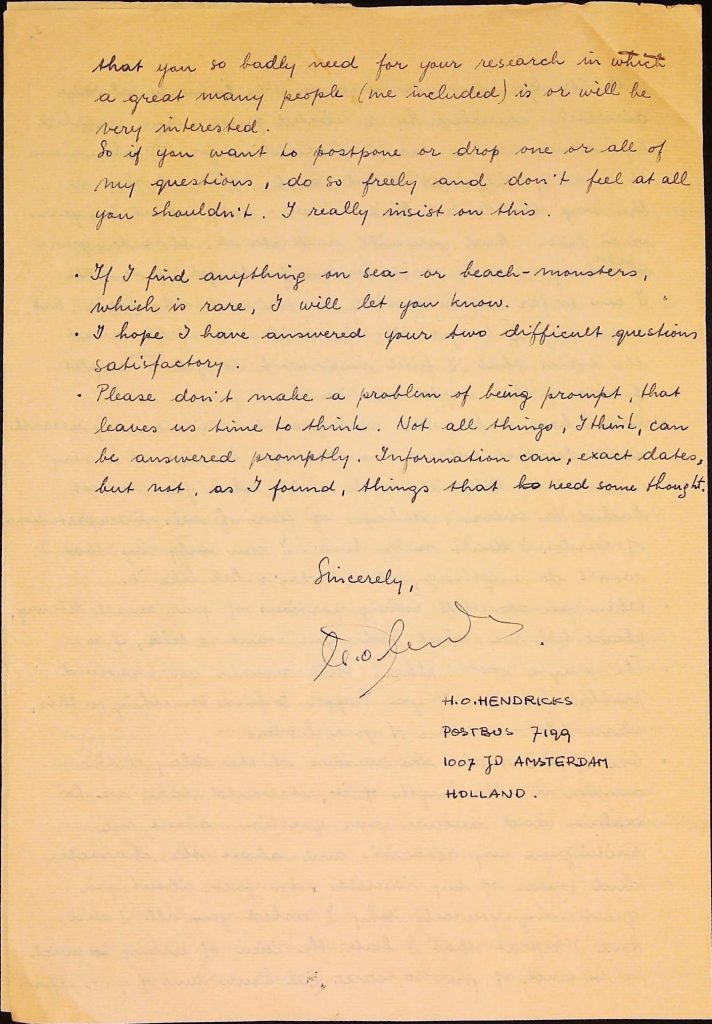 that you so badly need for your research in which
a great many people (me included) is or will be
very interested.
So if you want to postpone or drop one or all of
my questions, do so freely and don't feel at all
you shouldn't. I really insist on this.
· If I find anything on sea- or beach-monsters,
which is rare, I will let you know.
· I hope I have answered your two difficult questions
satisfactory.
· Please don't make a problem of being prompt, that
leaves us time to think. Not all things, I think, can
be answered promptly. Information can, exact dates,
but not, as I found, things that need some thought.
Sincerely,
H.O.HENDRICKS
POSTBUS 7199
1007 JD AMSTERDAM
HOLLAND.